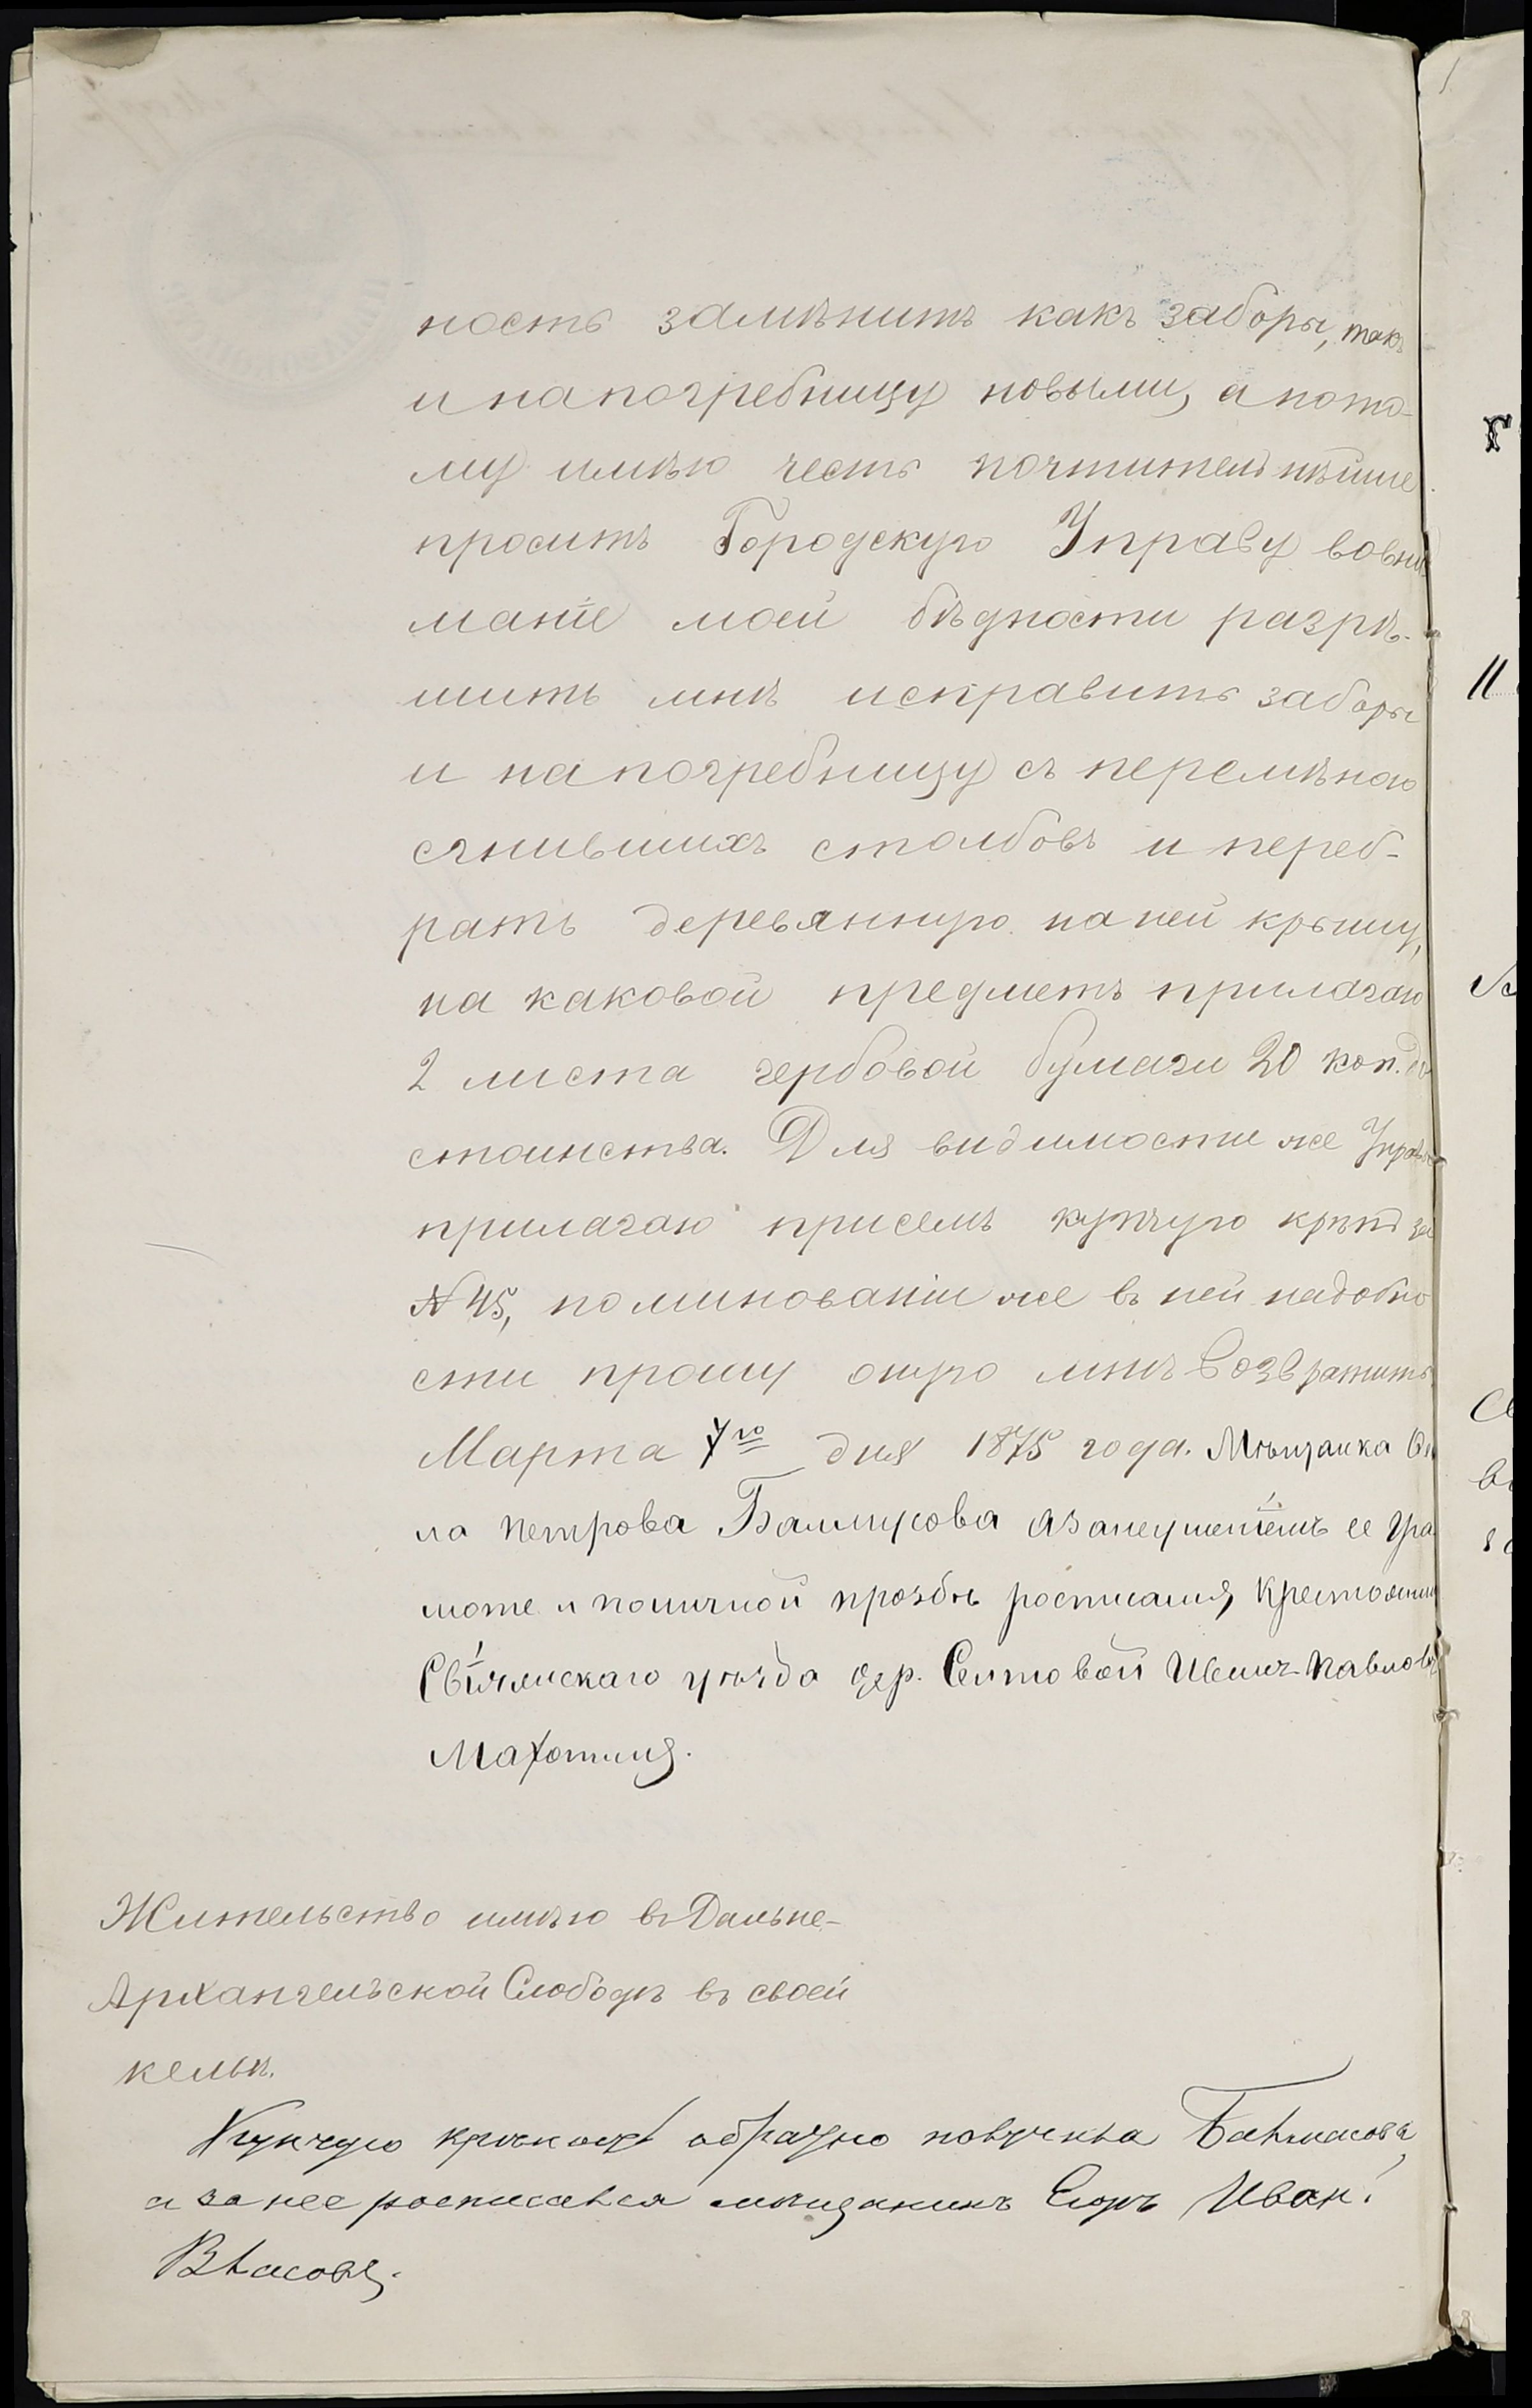 ность замѣнить какъ заборы, такъ
и напогребницу новыми, а пото-
му имѣю честь почтительнѣйше
просить Городскую Управу вовни
маніе моей бѣдности разрѣ-
шить мнѣ исправить заборы
и напогребницу съ перемѣною
сгнившихъ столбовъ и переб-
рать деревянную на ней крышу,
на каковой предметъ прилагаю
2 листа гербовой бумаги 20 коп. до
стоинства. Для видимости же Управы
прилагаю присемъ купчую крѣпь за
№ 45, поминованіи же въ ней надобно
сти прошу оную мнѣ возвратить.
Марта 7го дня 1875 года. Мѣщанка
ла Петрова азанеуменіемъ ее гра
моте и поличной прозбѣ росписался, Крестьянин
уѣзда дер. Иванъ Павловъ
Махотинъ.
Жительство имѣю въ Дальне-
Архангельской Слободѣ въ своей
кельѣ.
Купчую крѣпость обратно получила
а за нее росписался мѣщанинъ Егоръ Иван.
Власовъ.